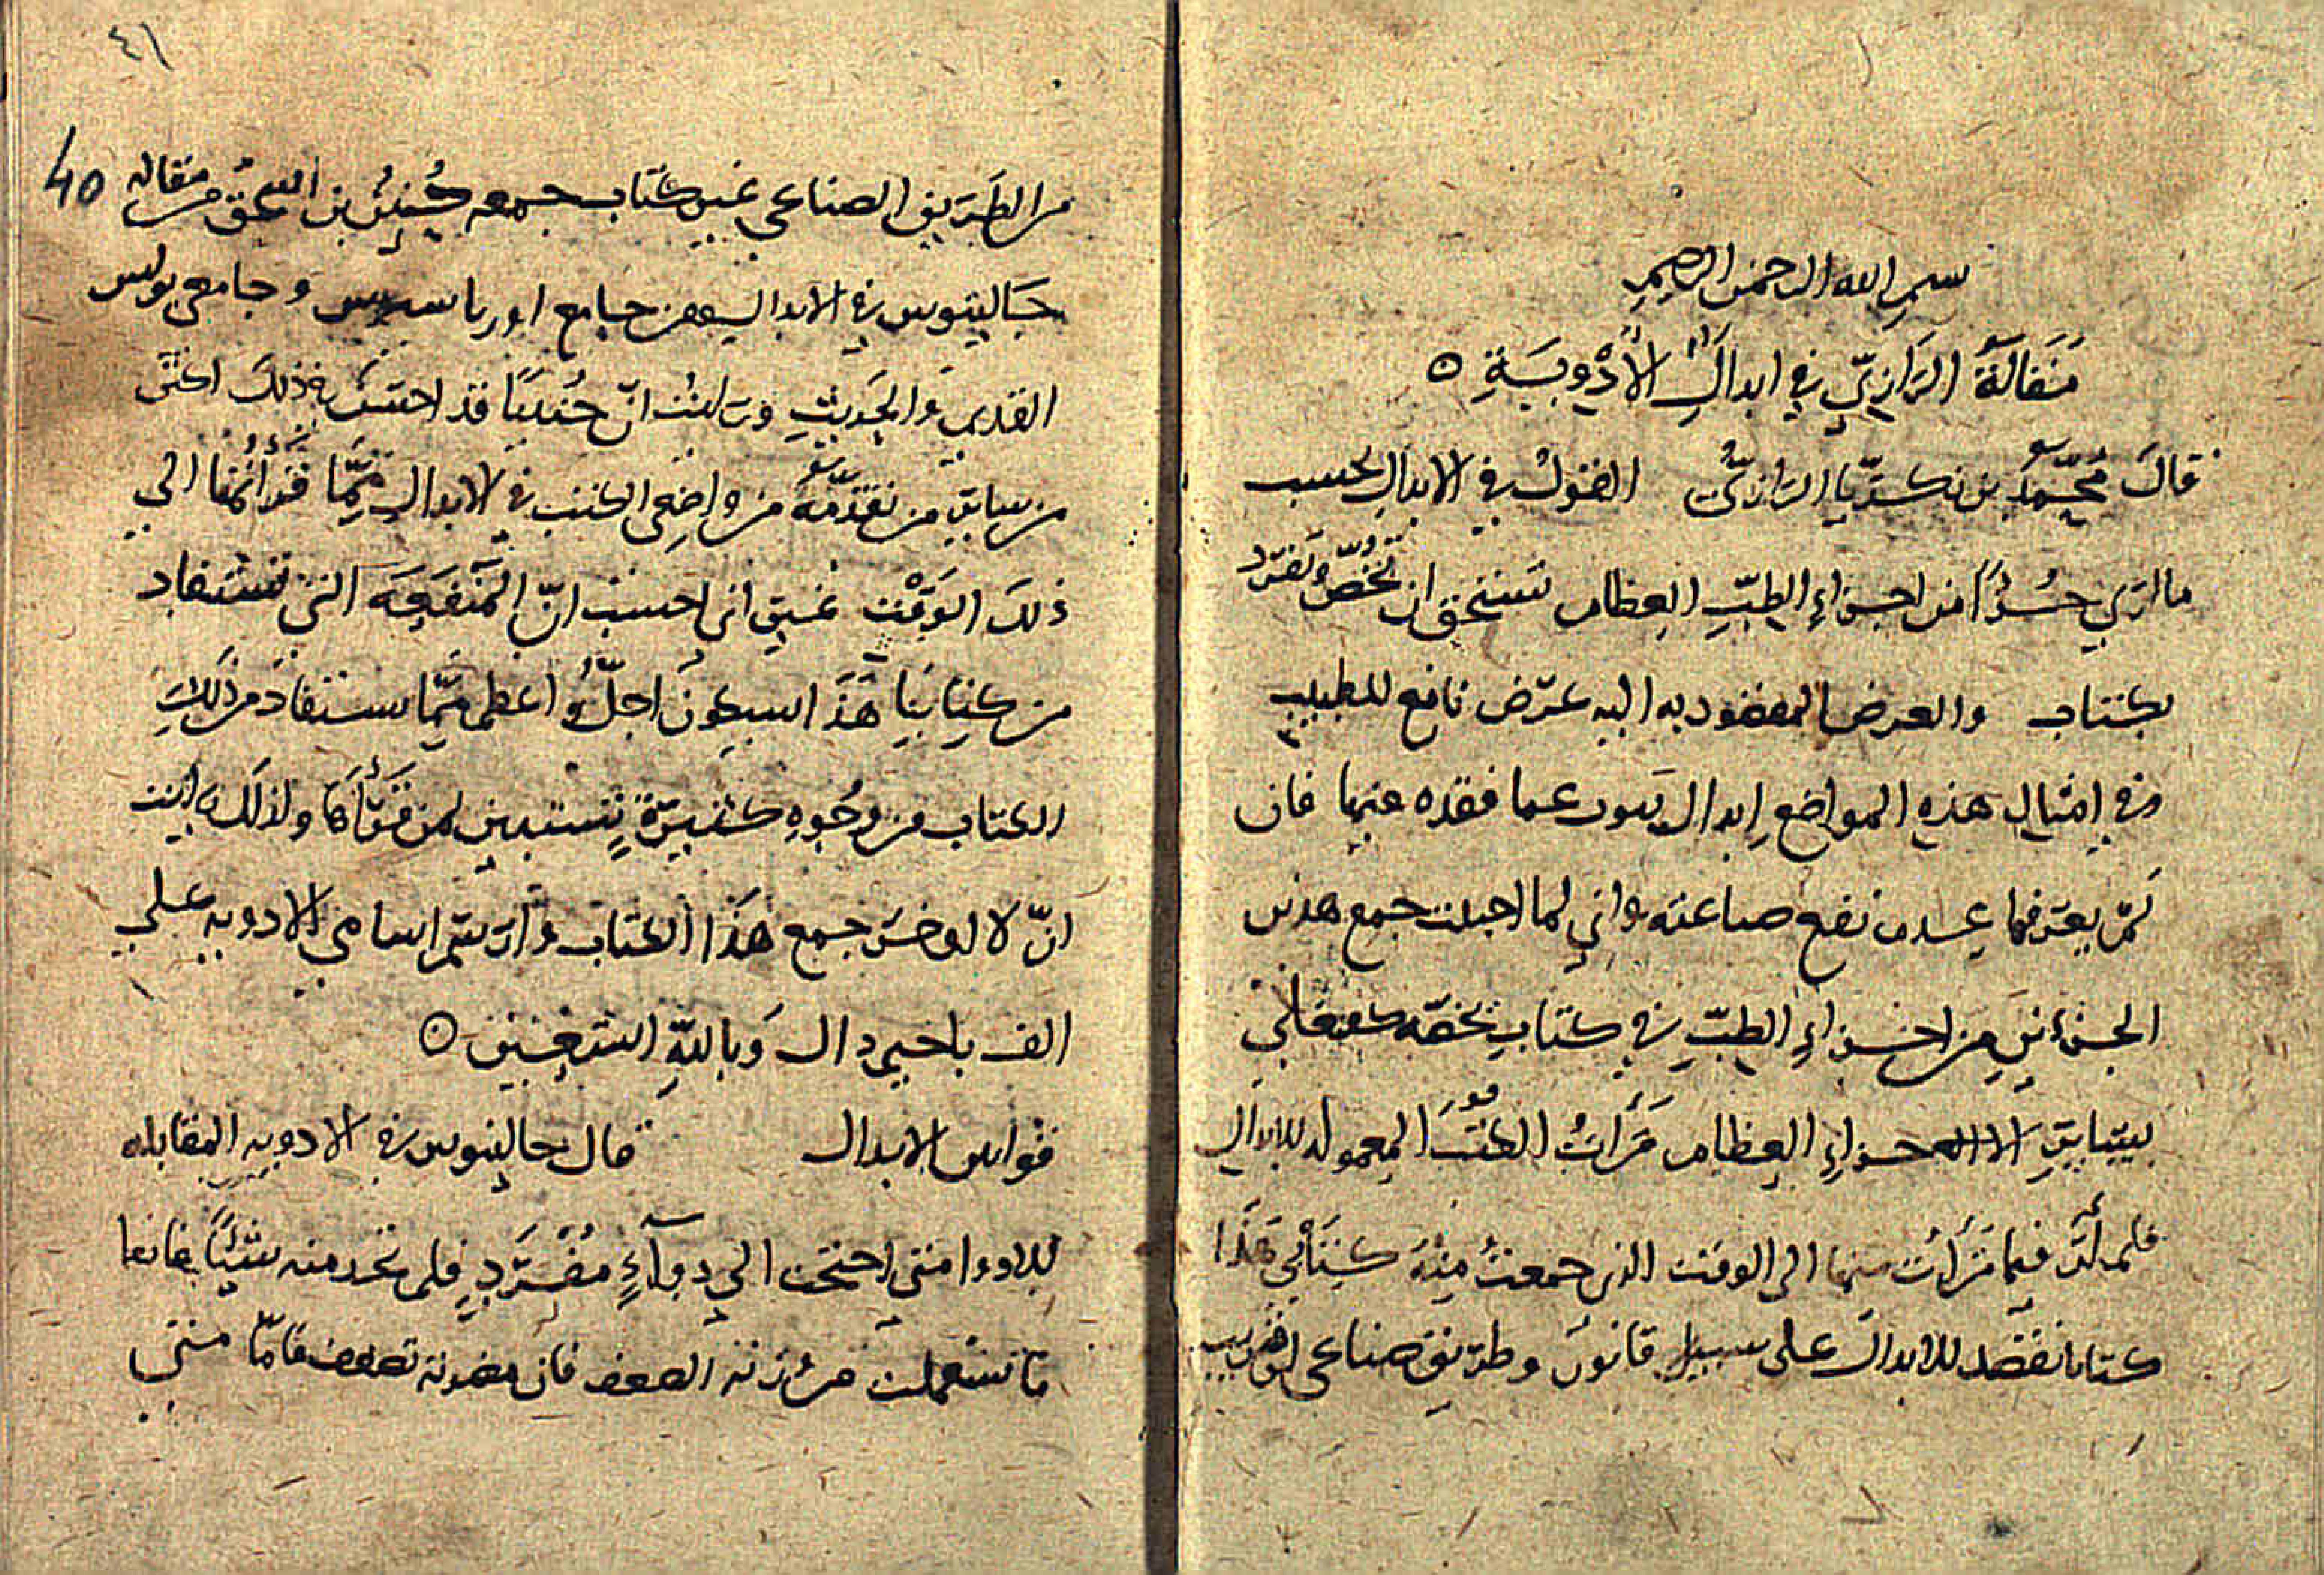 بسم الله الرحمن الرحيم
مَقَالَةُ الرَازِيّ في ابدالِ الأدْوِيَةِ ه
قالَ مُحَمَّدُ بن زكريّا الرازيُّ القولُ في الابدال بحسب
ما اري جُزءًا من اجزاءِ الطبِّ العظام يستحق ان تخُصّ وتفرد
بكتاب والغرض المقصود به اليه غرض نافع للطبيب
وفي امثالِ هذه المواضع ابدال عما فقده منها فان
لَمْ يعرفها عدم نفع صناعته واني لما اجبلت جمع هذين
الجزءينِ من اجزاءِ الطبِّ في كتابٍ يخصّه كفعلي
بسايرِ الاجزاءِ العظام قرأتُ الكتبَ المعموله للابدال
فلم أرَ فيما قرأت منها الي الوقت الذي جمعتُ فيه كتابي هَذا
كتابا نقصد للابدال علي سبيل قانون وطريق صناعي او قريب
٤١
40
من الطريق الصناعي غير كتاب جمعه حُنينُ بن اسحق من مقاله
جَالينوس في الابدال ومن جوامع اورباسيس وجامعي بولس
القديم والحديث ورايت انّ حُنينًا قد احسن في ذلك اكثر
من سايرِ من تقدّمهُ من واضعي الكتب في الابدال ممّا قرأتُها الي
ذلكَ الوَقْت غير اني احسب انّ المنفعَة التي تستفاد
من كتابنا هَذَا سيكون اجلُّ واعظم ممّا يستفاد من ذلكَ
الكتاب من وجُوهِ كثيرةٍ تستبين لمن قرأَهَا ولذلك رايت
انّ لا اوخر جمع هَذا الكتاب وارسم اسامي الادويه علي
الف با جيم دال وَباللهِ استعين ه
قوانين الابدال قال جالينوس في الادويه المقابله
للادوا متي احتجت الي دوآءٍ مُفْرَدٍ فلم تجد منه شيئاً فانما
تاستعملت من زنه الضعف فان تضعف فامّا متي